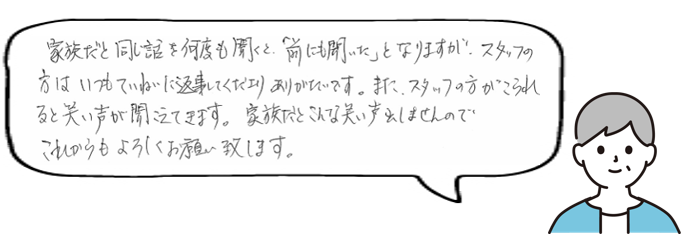 家族だと同じ話を何度も聞くと、「前にも聞いた」となりますが、スタッフの
方はいつもていねいに返事してくださりありがたいです。また、スタッフの方がこられ
ると笑い声が聞こえてきます。家族だとこんな笑い声出しませんので
これからもよろしくお願い致します。